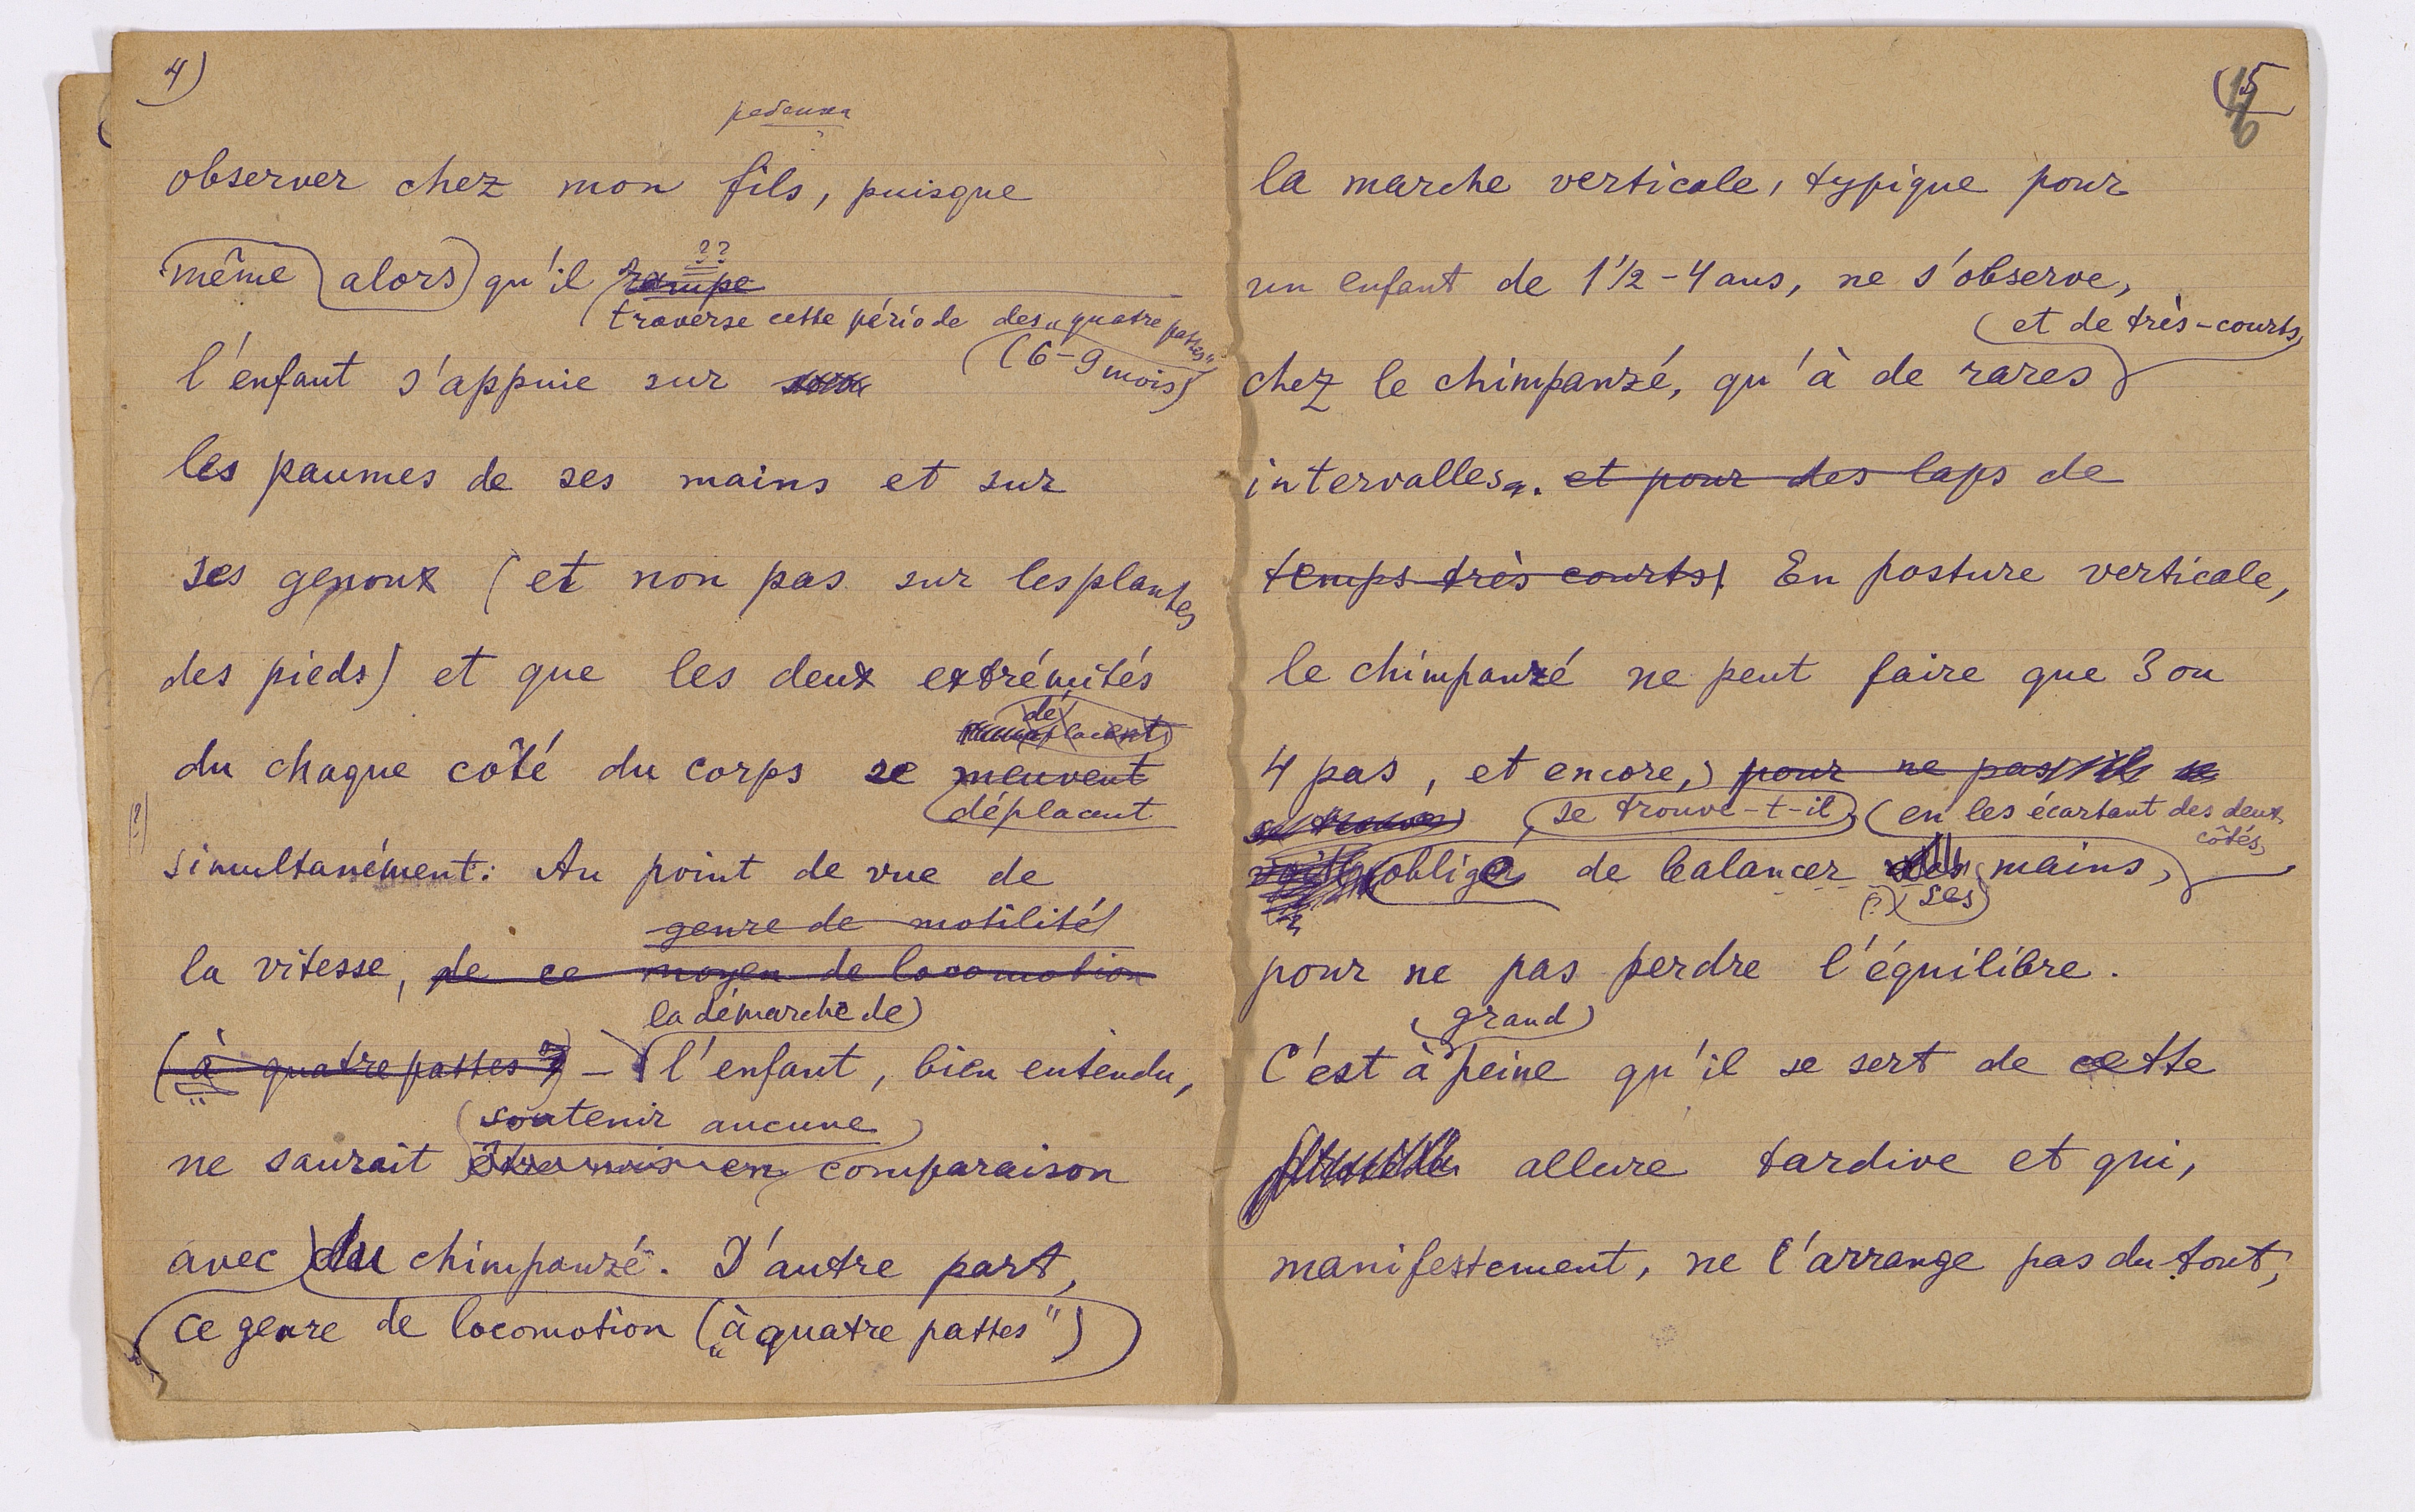 4)
ребенка
observer chez mon fils, puisque
même alors qu'il rampe ??
traverse cette période des „quatre pattes"
(6-9 mois)
l'enfant s'appuie sur
les paumes de ses mains et sur
ses genoux (et non pas sur les plantes
des pieds) et que les deux extrémités
de
du chaque côté du corps se meuvent
déplacent
(?)
simultanément: Au point de vue de
genre de motilité
la vitesse, de ce moyen de locomotion
la démarche de
(„à quatre pattes") – l'enfant, bien entendu,
soutenir aucune
ne saurait être mis en comparaison
avec du chimpanzé. D'autre part,
ce genre de locomotion („à quatre pattes")
(5
16
la marche verticale, typique pour
un enfant de 1 1/2 - 4 ans, ne s'observe,
(et de très-courts)
chez le chimpanzé, qu'à de rares
intervalles. et pour des laps de
temps très courts. En posture verticale,
le chimpanzé ne peut faire que 3 ou
4 pas, et encore, pour ne pas
se trouve-t-il (en les écartant des deux
côtés)
obligé de balancer des mains,
(?) (ses)
pour ne pas perdre l'équilibre.
(grand)
C'est à peine qu'il se sert de cette
allure tardive et qui,
manifestement, ne l'arrange pas du tout,